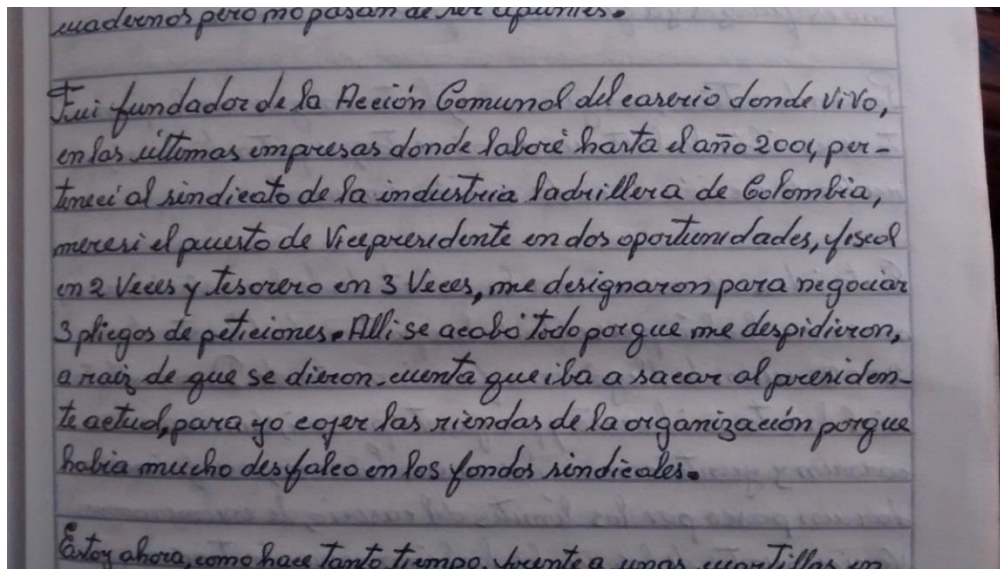 cuadernos pero no pasan de ser apuntes.
Fui fundador de la Acción Comunal del caserio donde vivo,
en las últimas empresas donde laboré hasta el año 2001, per-
teneci al sindicato de la industria ladrillera de Colombia,
meresi el puesto de Vicepresidente en dos oportunidades, fiscal
en 2 Veces y tesorero en 3 Veces, me designaron para negociar
3 pliegos de peticiones. Alli se acabó todo porque me despidieron,
a raiz de que se dieron cuenta que iba a sacar al presiden-
te actual, para yo cojer las riendas de la organización porque
habia mucho desfalco en los fondos sindicales.
Estoy ahora, como hace tanto tiempo, frente a unas cuartillas en